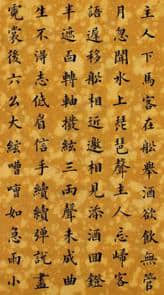 主人下馬客在船舉酒欲飲無管
月忽聞水上琵琶聲主人忘歸客
語遲移船相近邀相見添酒回燈
半遮面轉軸撥絃三兩聲未成曲
生不得志低眉信手續續彈說盡
霓裳後六么大絃嘈嘈如急雨小